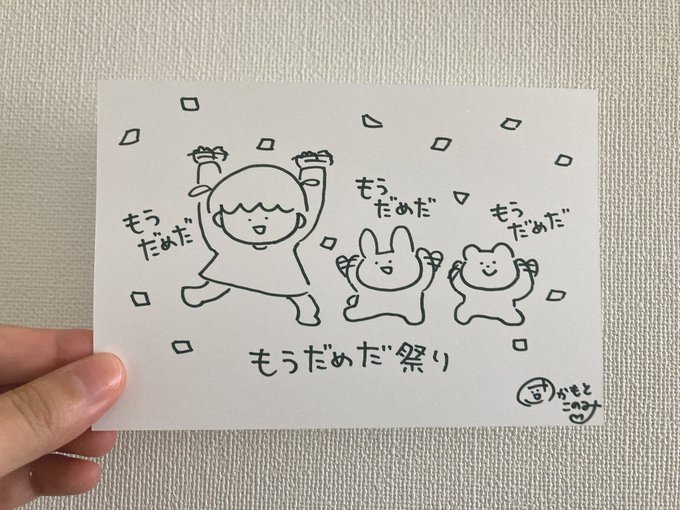 もう
だめだ
もう
だめだ
もう
だめだ
もうだめだ祭り
かもと
このみ